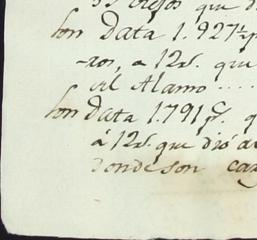 que d
Son Data 1.927½ p
-ros, a 12 rs. que
el Alamo ....
Son Data 1.791 ps. q
á 12 rs. que dió a
Donde son ca